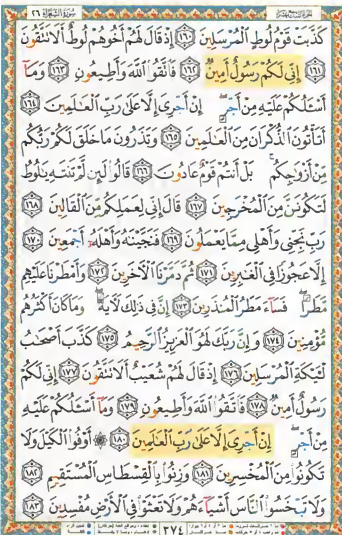 سُورَةُ الشُّعَرَاءِ ٢٦
كَذَّبَتْ قَوْمُ لُوطٍ الْمُرْسَلِينَ ١٦٠ إِذْ قَالَ لَهُمْ أَخُوهُمْ لُوطٌ أَلَا تَتَّقُونَ
١٦١ إِنِّي لَكُمْ رَسُولٌ أَمِينٌ ١٦٢ فَاتَّقُوا اللَّهَ وَأَطِيعُونِ ١٦٣ وَمَا
أَسْـَٔلُكُمْ عَلَيْهِ مِنْ أَجْرٍ إِنْ أَجْرِيَ إِلَّا عَلَى رَبِّ الْعَالَمِينَ ١٦٤
أَتَأْتُونَ الذُّكْرَانَ مِنَ الْعَالَمِينَ ١٦٥ وَتَذَرُونَ مَا خَلَقَ لَكُمْ رَبُّكُمْ
مِنْ أَزْوَاجِكُمْ بَلْ أَنْتُمْ قَوْمٌ عَادُونَ ١٦٦ قَالُوا لَئِنْ لَمْ تَنْتَهِ يَا لُوطُ
لَتَكُونَنَّ مِنَ الْمُخْرَجِينَ ١٦٧ قَالَ إِنِّي لِعَمَلِكُمْ مِنَ الْقَالِينَ ١٦٨
رَبِّ نَجِّنِي وَأَهْلِي مِمَّا يَعْمَلُونَ ١٦٩ فَنَجَّيْنَاهُ وَأَهْلَهُ أَجْمَعِينَ ١٧٠
إِلَّا عَجُوزًا فِي الْغَابِرِينَ ١٧١ ثُمَّ دَمَّرْنَا الْآخَرِينَ ١٧٢ وَأَمْطَرْنَا عَلَيْهِمْ
مَطَرًا فَسَاءَ مَطَرُ الْمُنْذَرِينَ ١٧٣ إِنَّ فِي ذَلِكَ لَآيَةً وَمَا كَانَ أَكْثَرُهُمْ
مُؤْمِنِينَ ١٧٤ وَإِنَّ رَبَّكَ لَهُوَ الْعَزِيزُ الرَّحِيمُ ١٧٥ كَذَّبَ أَصْحَابُ
لْـَٔيْكَةِ الْمُرْسَلِينَ ١٧٦ إِذْ قَالَ لَهُمْ شُعَيْبٌ أَلَا تَتَّقُونَ ١٧٧ إِنِّي لَكُمْ
رَسُولٌ أَمِينٌ ١٧٨ فَاتَّقُوا اللَّهَ وَأَطِيعُونِ ١٧٩ وَمَا أَسْـَٔلُكُمْ عَلَيْهِ
مِنْ أَجْرٍ إِنْ أَجْرِيَ إِلَّا عَلَى رَبِّ الْعَالَمِينَ ١٨٠ ۞ أَوْفُوا الْكَيْلَ وَلَا
تَكُونُوا مِنَ الْمُخْسِرِينَ ١٨١ وَزِنُوا بِالْقِسْطَاسِ الْمُسْتَقِيمِ ١٨٢
وَلَا تَبْخَسُوا النَّاسَ أَشْيَاءَهُمْ وَلَا تَعْثَوْا فِي الْأَرْضِ مُفْسِدِينَ ١٨٣
٣٧٤